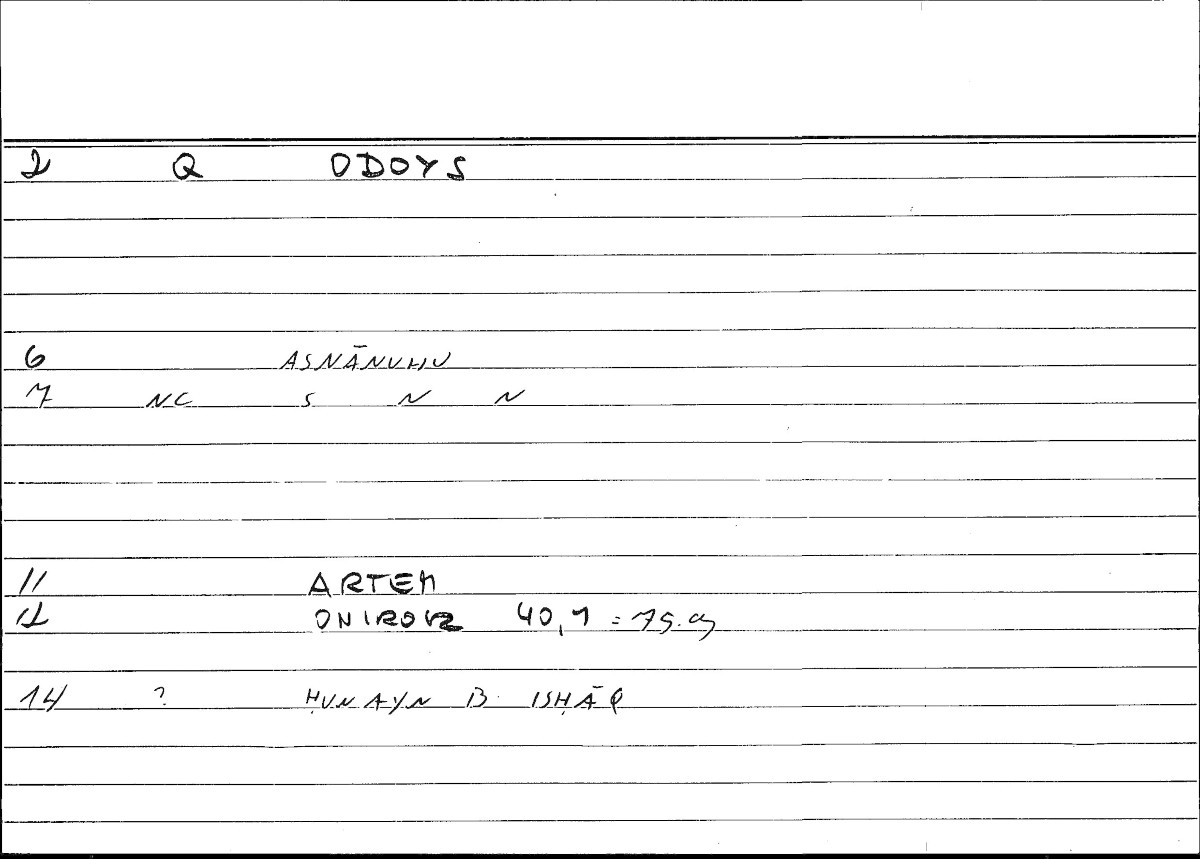 2 Q ODOYS
6 ASNĀNUHU
7 NC S N N
11 ARTEM
12 ONIROKR 40,1 = 75.9
14 ? ḤUNAYN B. ISḤĀQ